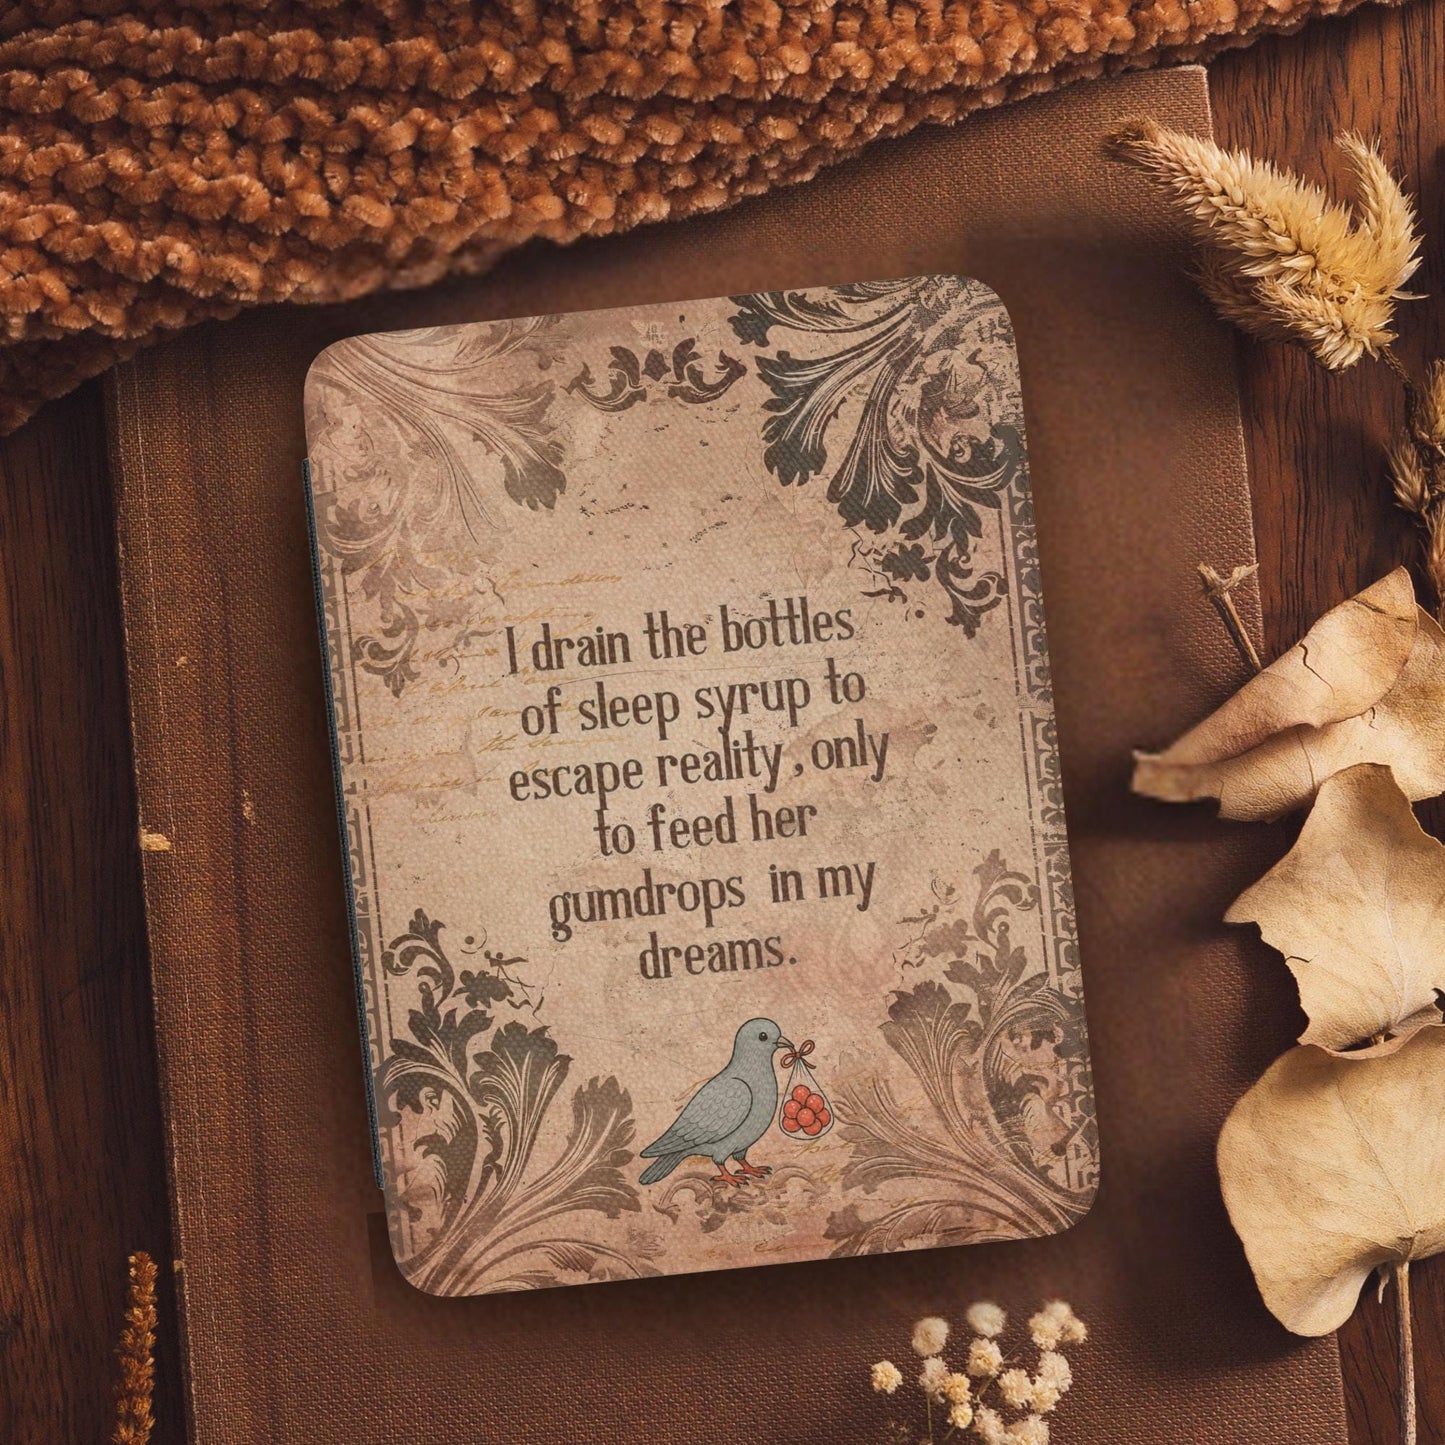 I drain the bottles
of sleep syrup to
escape reality, only
to feed her
gumdrops in my
dreams.